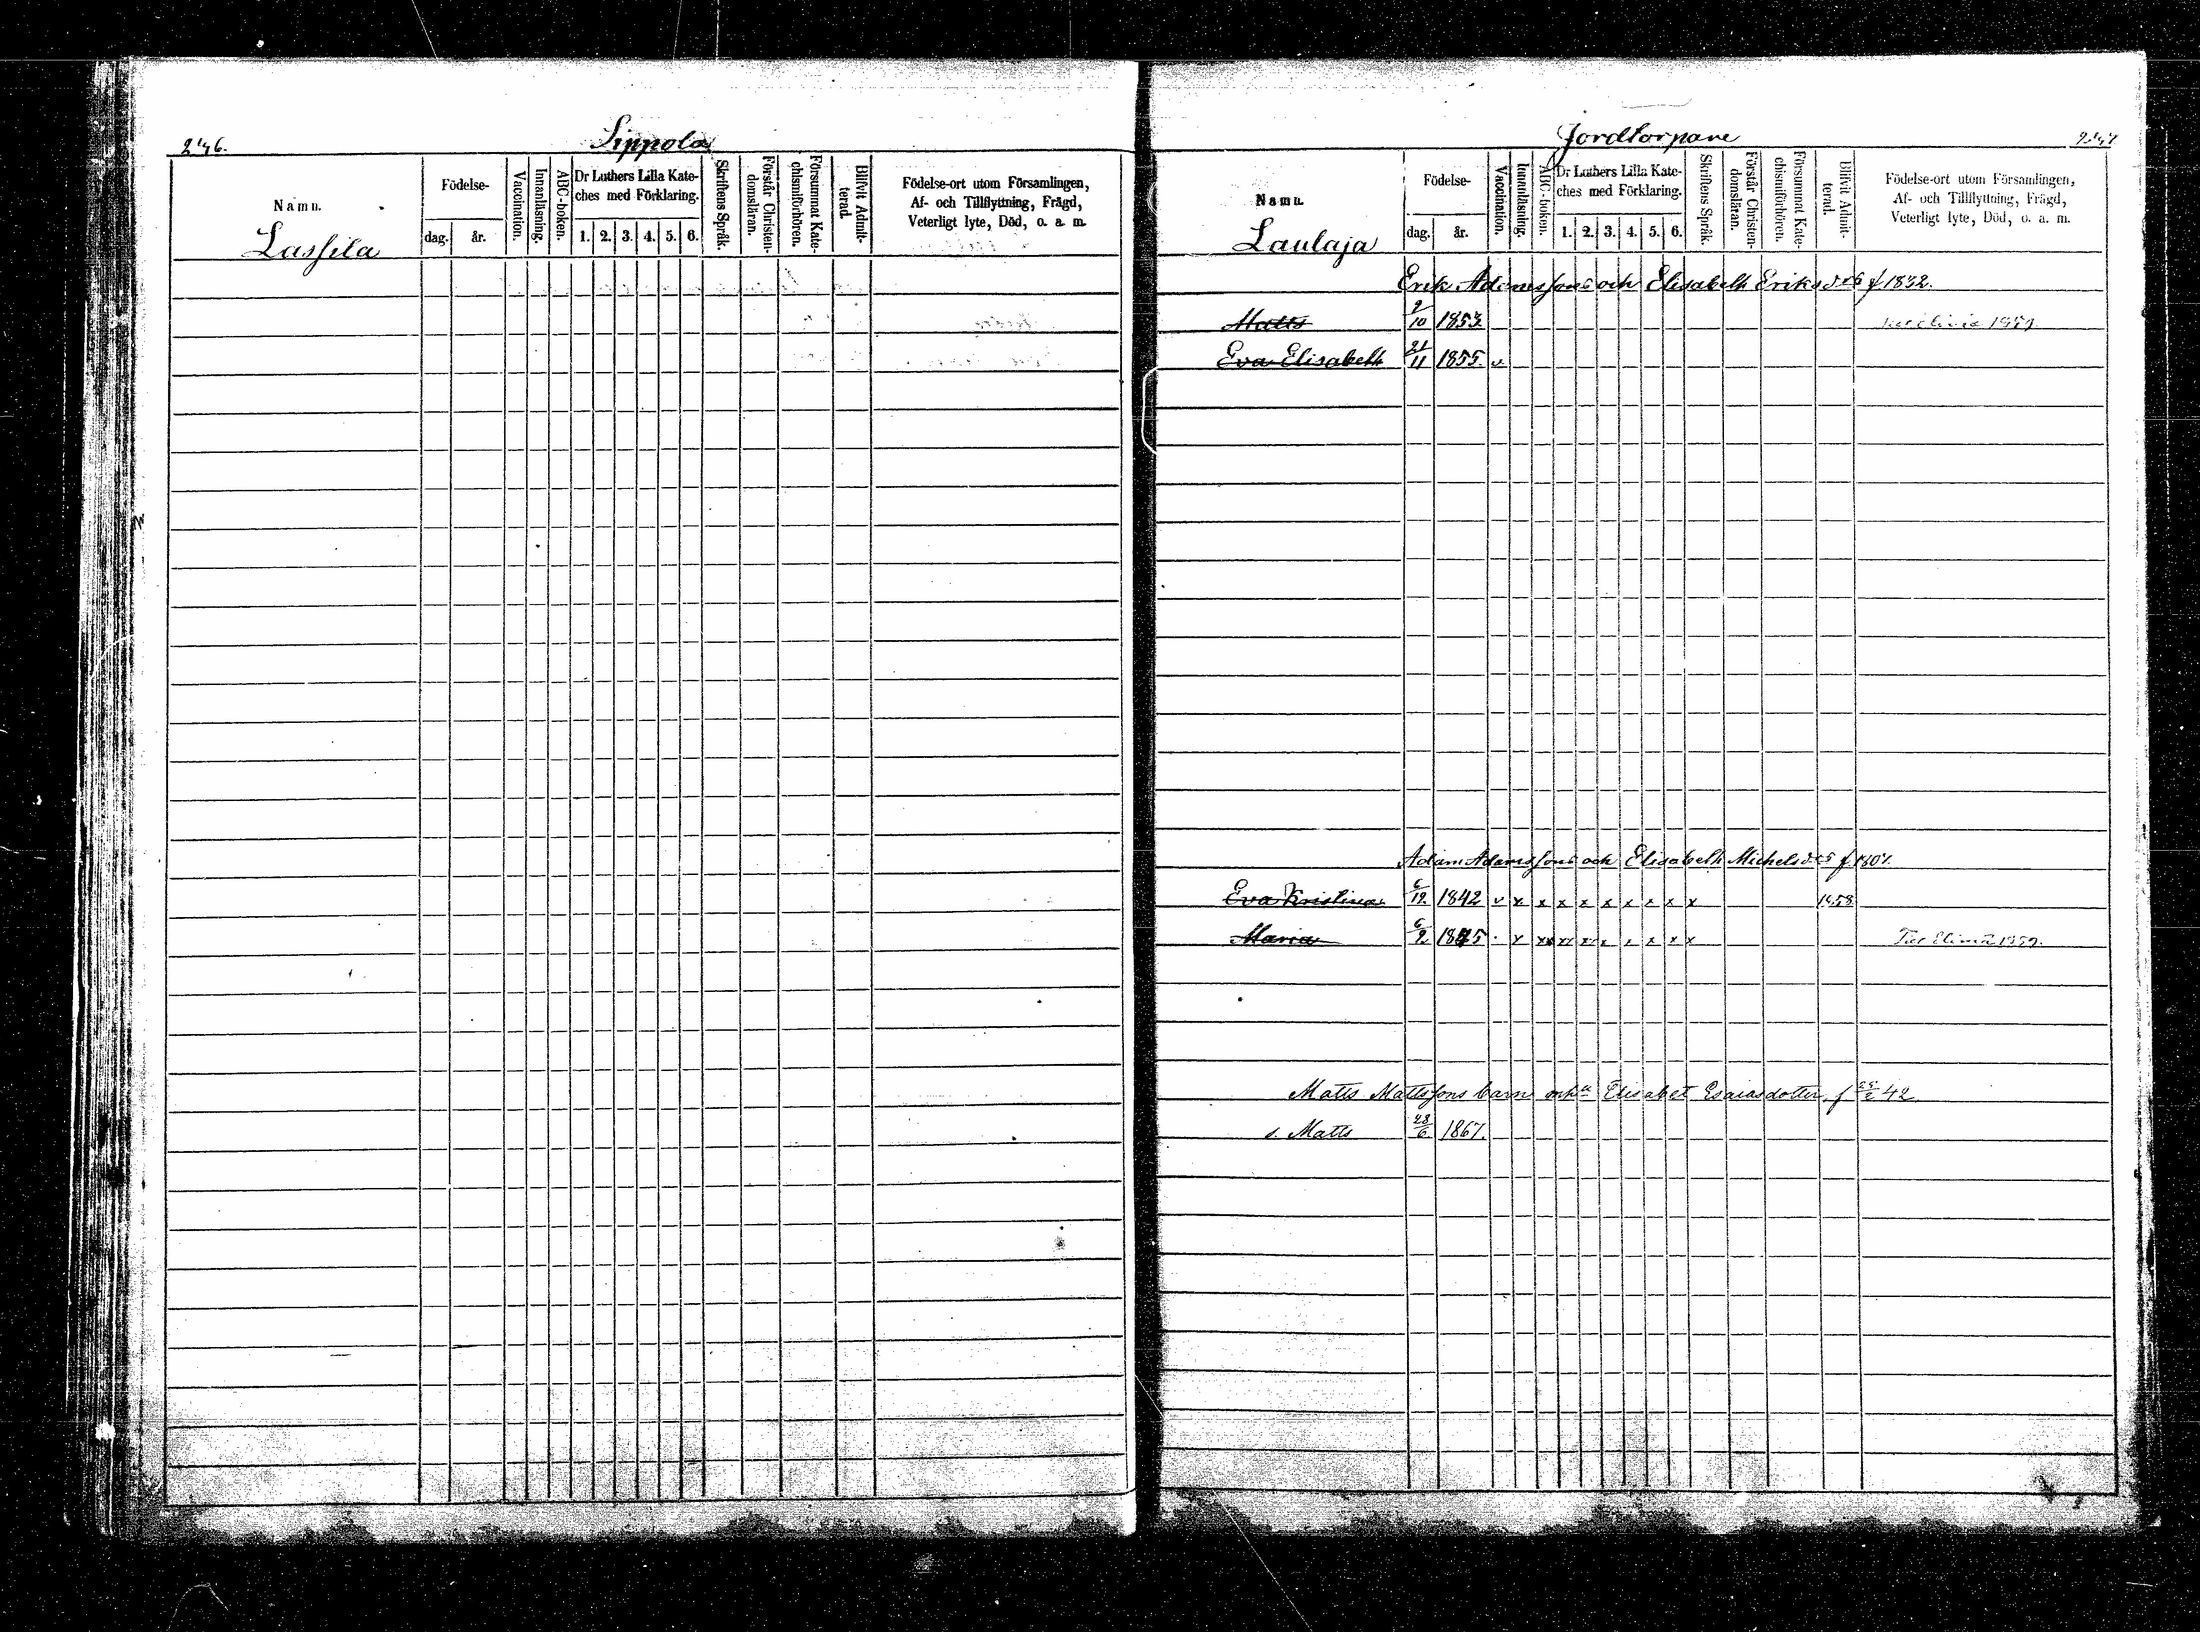 246.
Sippola
Namn.
Födelse-
dag.
år.
Vaccination.
Innanläsning.
ABC-boken.
Dr Luthers Lilla Kate-
ches med Förklaring.
1. 2. 3. 4. 5. 6.
Skriftens Språk.
Förstår Christen-
domsläran.
Försummat Kate-
chismiförhören.
Blifvit Admit-
terad.
Födelse-ort utom Församlingen,
Af- och Tillflyttning, Frägd,
Veterligt lyte, Död, o. a. m.
Lassila
Jordtorpare
247
Namn.
Födelse-
dag.
år.
Vaccination.
Innanläsning.
ABC-boken.
Dr Luthers Lilla Kate-
ches med Förklaring.
1. 2. 3. 4. 5. 6.
Skriftens Språk.
Förstår Christen-
domsläran.
Försummat Kate-
chismiförhören.
Blifvit Admit-
terad.
Födelse-ort utom Församlingen,
Af- och Tillflyttning, Frägd,
Veterligt lyte, Död, o. a. m.
Laulaja
Erik Adamssons och Elisabeth Eriksd:s f 1832.
Matts 2/10 1853 1859.
Eva Elisabeth 21/11 1855. v
Adam Adamssons och Elisabeth Michelsd:s f. 1807.
Eva Kristina 6/12 1842 v x x x x x x x x x 1858
Maria 6/2 1845 · x xx xx xx x x x x x Till Elimä 1859.
Matts Mattssons barn enka Elisabet Esaiasdotter f 25/2 42
s. Matts 28/6 1867.